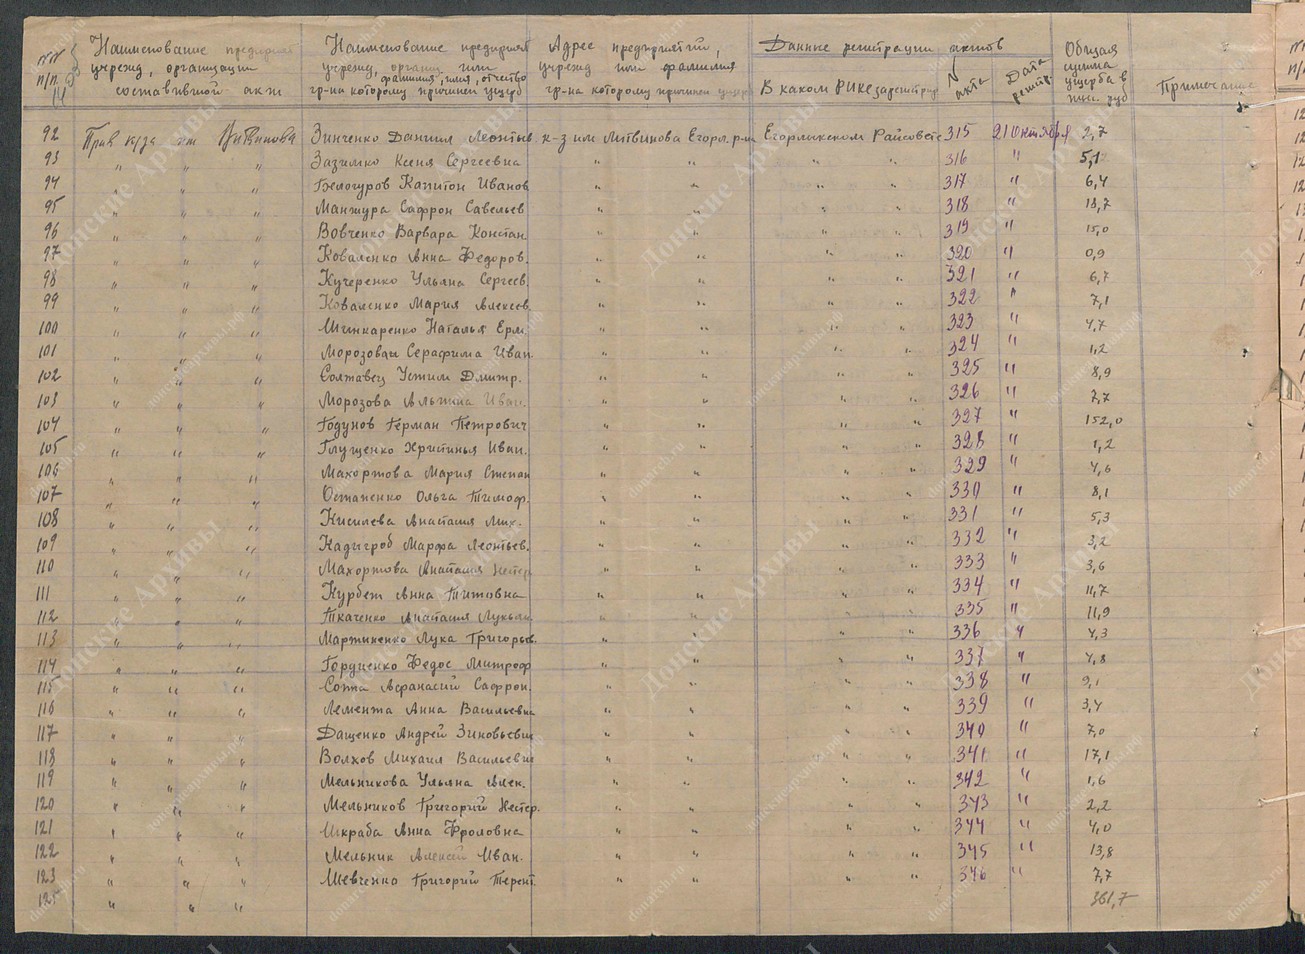 NN п/п Наименование предприят учрежд, организации составившей акт Наименование предприят учрежд, организ или фамилия, имя, отчество гр-на которому причинен ущерб Адрес предприятий, учрежд или фамилия гр-на которому причинен ущерб Данные регистрации актов В каком РИКе зарегистрир N акта Дата регистр. Общая сумма ущерба в тыс. руб Примечание
92 Прав к/за им Литвинова Зинченко Даниил Леонтьев. к-з им Литвинова Егорл. р-на Егорлыкском Райсовете 315 21 октября 2,7
93 " " " Зазимко Ксеня Сергеевна " " " " 316 " 5,1
94 " " " Белогуров Капитон Иванов " " " " 317 " 6,4
95 " " " Манжура Сафрон Савельев " " " " 318 " 13,7
96 " " " Вовченко Варвара Констан. " " " " 319 " 15,0
97 " " " Коваленко Анна Федоров. " " " " 320 " 0,9
98 " " " Кучеренко Ульяна Сергеев. " " " " 321 " 6,7
99 " " " Коваленко Мария Алексев. " " " " 322 " 7,1
100 " " " Шинкаренко Наталья Ерм. " " " " 323 " 4,7
101 " " " Морозова Серафима Иван " " " " 324 " 1,2
102 " " " Солтавец Устим Дмитр. " " " " 325 " 8,9
103 " " " Морозова Иван. " " " " 326 " 2,7
104 " " " Годунов Герман Петрович " " " " 327 " 152,0
105 " " " Глущенко Христинья Иван. " " " " 328 " 1,2
106 " " " Махортова Мария Степан " " " " 329 " 4,6
107 " " " Остапенко Ольга Тимоф. " " " " 330 " 8,1
108 " " " Кисилева Анастасия Мих. " " " " 331 " 5,3
109 " " " Кадигроб Марфа Леонтьев. " " " " 332 " 3,2
110 " " " Махортова Анастасия Нестер " " " " 333 " 3,6
111 " " " Курбет Анна Титовна " " " " 334 " 11,7
112 " " " Ткаченко Анастасия Лукьян. " " " " 335 " 11,9
113 " " " Мартиненко Лука Григорьев. " " " " 336 " 4,3
114 " " " Горуценко Федос Митроф " " " " 337 " 4,8
115 " " " Сотта Афанасий Сафрон. " " " " 338 " 9,1
116 " " " Лемента Анна Васильевна " " " " 339 " 3,4
117 " " " Дащенко Андрей Зиновьевич " " " " 340 " 7,0
118 " " " Волхов Михаил Васильевич " " " " 341 " 17,1
119 " " " Мельникова Ульяна Алек. " " " " 342 " 1,6
120 " " " Мельников Григорий Нестер. " " " " 343 " 2,2
121 " " " Шкраба Анна Фроловна " " " " 344 " 4,0
122 " " " Мельник Алексей Иван. " " " " 345 " 13,8
123 " " " Шевченко Григорий Терент. " " " " 346 " 7,7
" " " 361,7